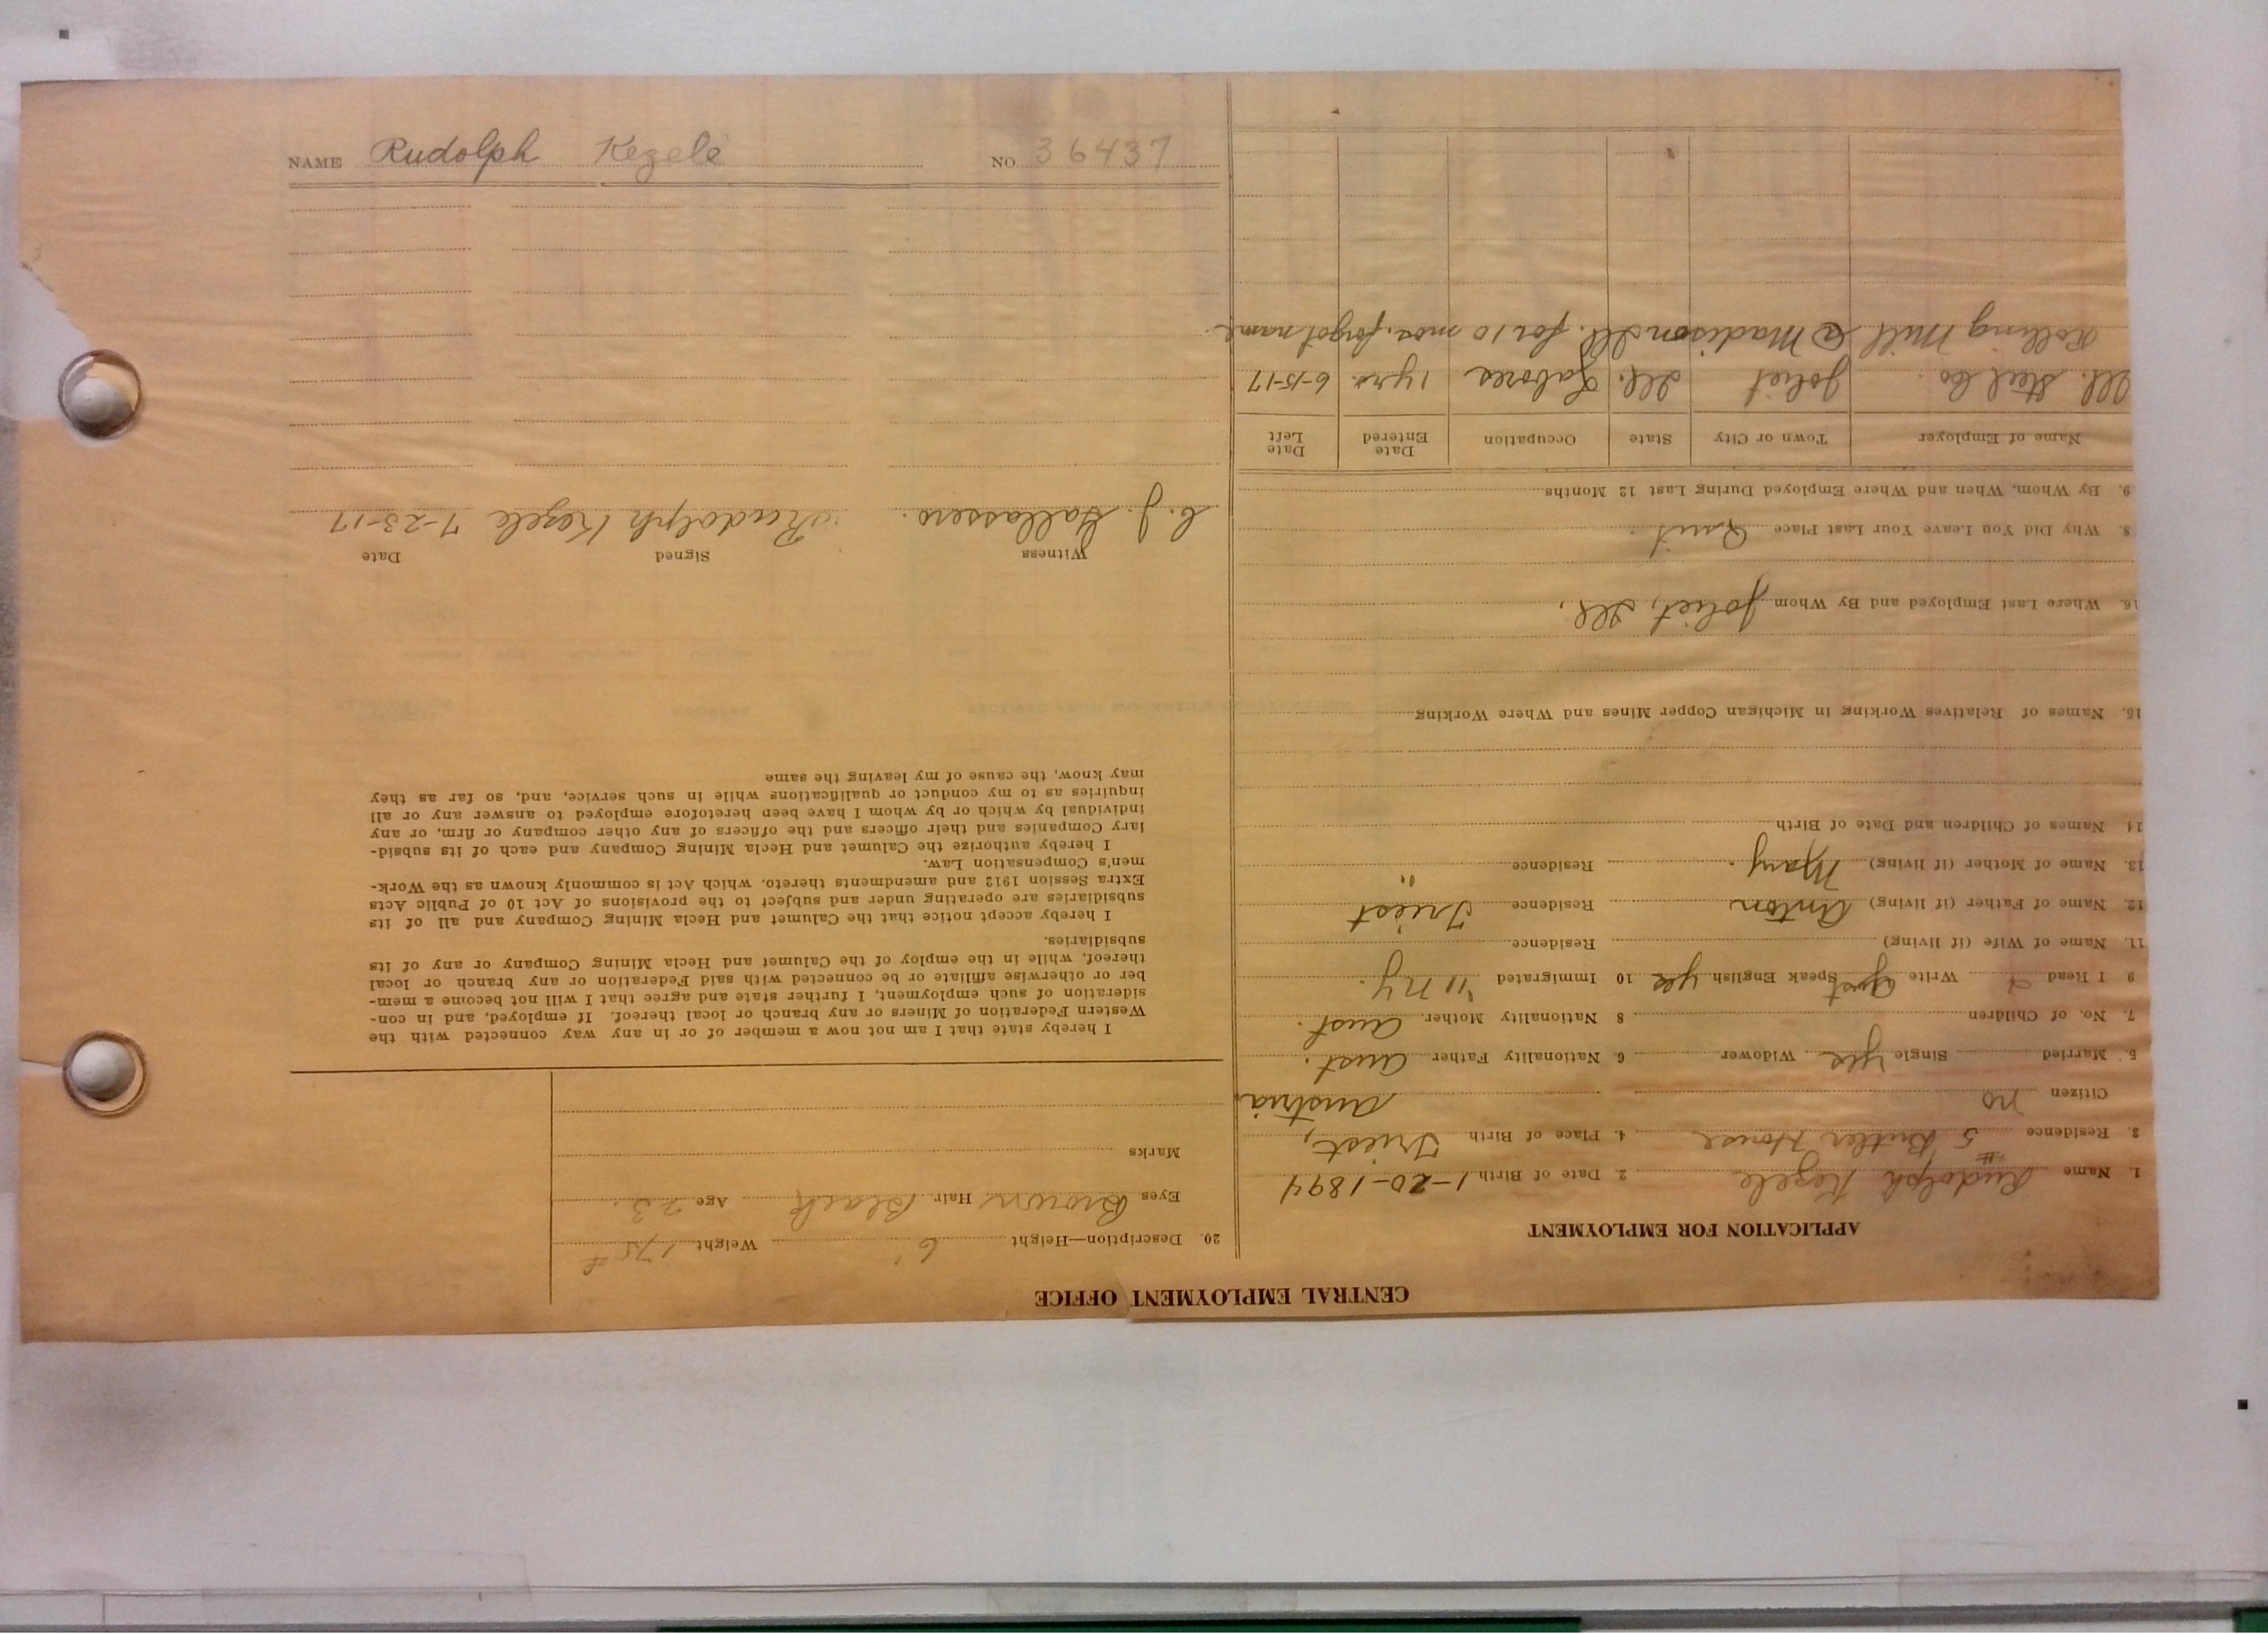 CENTRAL EMPLOYMENT OFFICE
APPLICATION FOR EMPLOYMENT
1. Name Rudolph Kezele 2. Date of Birth 1-20-1894
3. Residence #5 Butler House 4. Place of Birth Triest,
Citizen no Austria
5. Married Single yes Widower 6. Nationality Father Aust.
7. No. of Children 8 Nationality Mother Aust.
9 I Read & Write Aust Speak English yes 10 Immigrated '11 NY.
11. Name of Wife (if living) Residence
12. Name of Father (if living) Anton Residence Triest
13. Name of Mother (if living) Mary. Residence "
14 Names of Children and Date of Birth
15. Names of Relatives Working in Michigan Copper Mines and Where Working
16. Where Last Employed and By Whom Joliet, Ill.
8. Why Did You Leave Your Last Place Quit.
9. By Whom, When and Where Employed During Last 12 Months
Name of Employer Town or City State Occupation Date Entered Date Left
Ill. Steel Co. Joliet Ill. Laborer 1 yrs. 6-15-17
Rolling Mill @ Madison Ill. for 10 mos. forgot name
20. Description—Height 6' Weight 175#
Eyes Brown Hair Black Age 23.
Marks
I hereby state that I am not now a member of or in any way connected with the
Western Federation of Miners or any branch or local thereof. If employed, and in con-
sideration of such employment, I further state and agree that I will not become a mem-
ber or otherwise affiliate or be connected with said Federation or any branch or local
thereof, while in the employ of the Calumet and Hecla Mining Company or any of its
subsidiaries.
I hereby accept notice that the Calumet and Hecla Mining Company and all of its
subsidiaries are operating under and subject to the provisions of Act 10 of Public Acts
Extra Session 1912 and amendments thereto, which Act is commonly known as the Work-
men's Compensation Law.
I hereby authorize the Calumet and Hecla Mining Company and each of its subsid-
iary Companies and their officers and the officers of any other company or firm, or any
individual by which or by whom I have been heretofore employed to answer any or all
inquiries as to my conduct or qualifications while in such service, and, so far as they
may know, the cause of my leaving the same
Witness Signed Date
C. J. Gallassero. Rudolph Kezele 7-23-17
NAME Rudolph Kezele NO. 36437